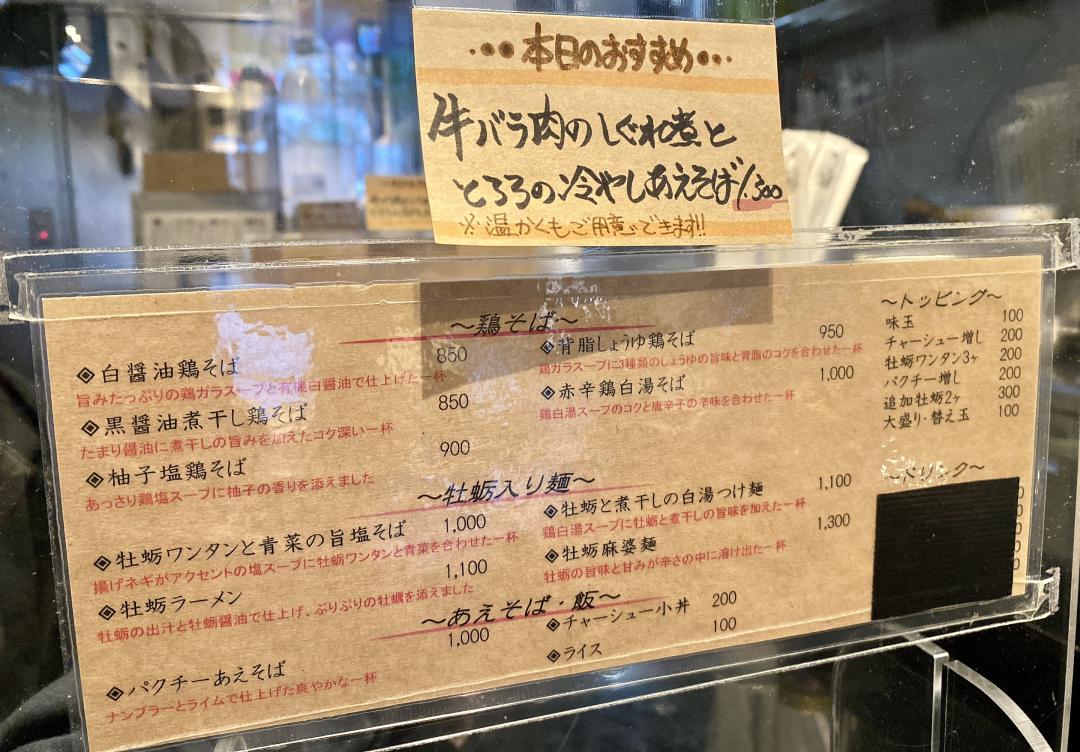 ・・・本日のおすすめ・・・
牛バラ肉のしぐれ煮と
とろろの冷やしあえそば 1,300
※温かくもご用意できます!!
～鶏そば～
◈白醤油鶏そば 850
旨みたっぷりの鶏ガラスープと有機白醤油で仕上げた一杯
◈黒醤油煮干し鶏そば 850
たまり醤油に煮干しの旨みを加えたコク深い一杯
◈柚子塩鶏そば 900
あっさり鶏塩スープに柚子の香りを添えました
◈背脂しょうゆ鶏そば 950
鶏ガラスープに3種類のしょうゆの旨味と背脂のコクを合わせた一杯
◈赤辛鶏白湯そば 1,000
鶏白湯スープのコクと唐辛子の辛味を合わせた一杯
～牡蛎入り麺～
◈牡蛎ワンタンと青菜の旨塩そば 1,000
揚げネギがアクセントの塩スープに牡蛎ワンタンと青菜を合わせた一杯
◈牡蛎ラーメン 1,100
牡蛎の出汁と牡蛎醤油で仕上げ、ぷりぷりの牡蠣を添えました
◈牡蛎と煮干しの白湯つけ麺 1,100
鶏白湯スープに牡蛎と煮干しの旨味を加えた一杯
◈牡蛎麻婆麺 1,300
牡蛎の旨味と甘みが辛さの中に溶け出た一杯
～あえそば・飯～
◈パクチーあえそば 1,000
ナンプラーとライムで仕上げた爽やかな一杯
◈チャーシュー小丼 200
◈ライス 100
～トッピング～
味玉 100
チャーシュー増し 200
牡蛎ワンタン3ヶ 200
パクチー増し 200
追加牡蛎2ヶ 300
大盛り・替え玉 100
～ドリンク～